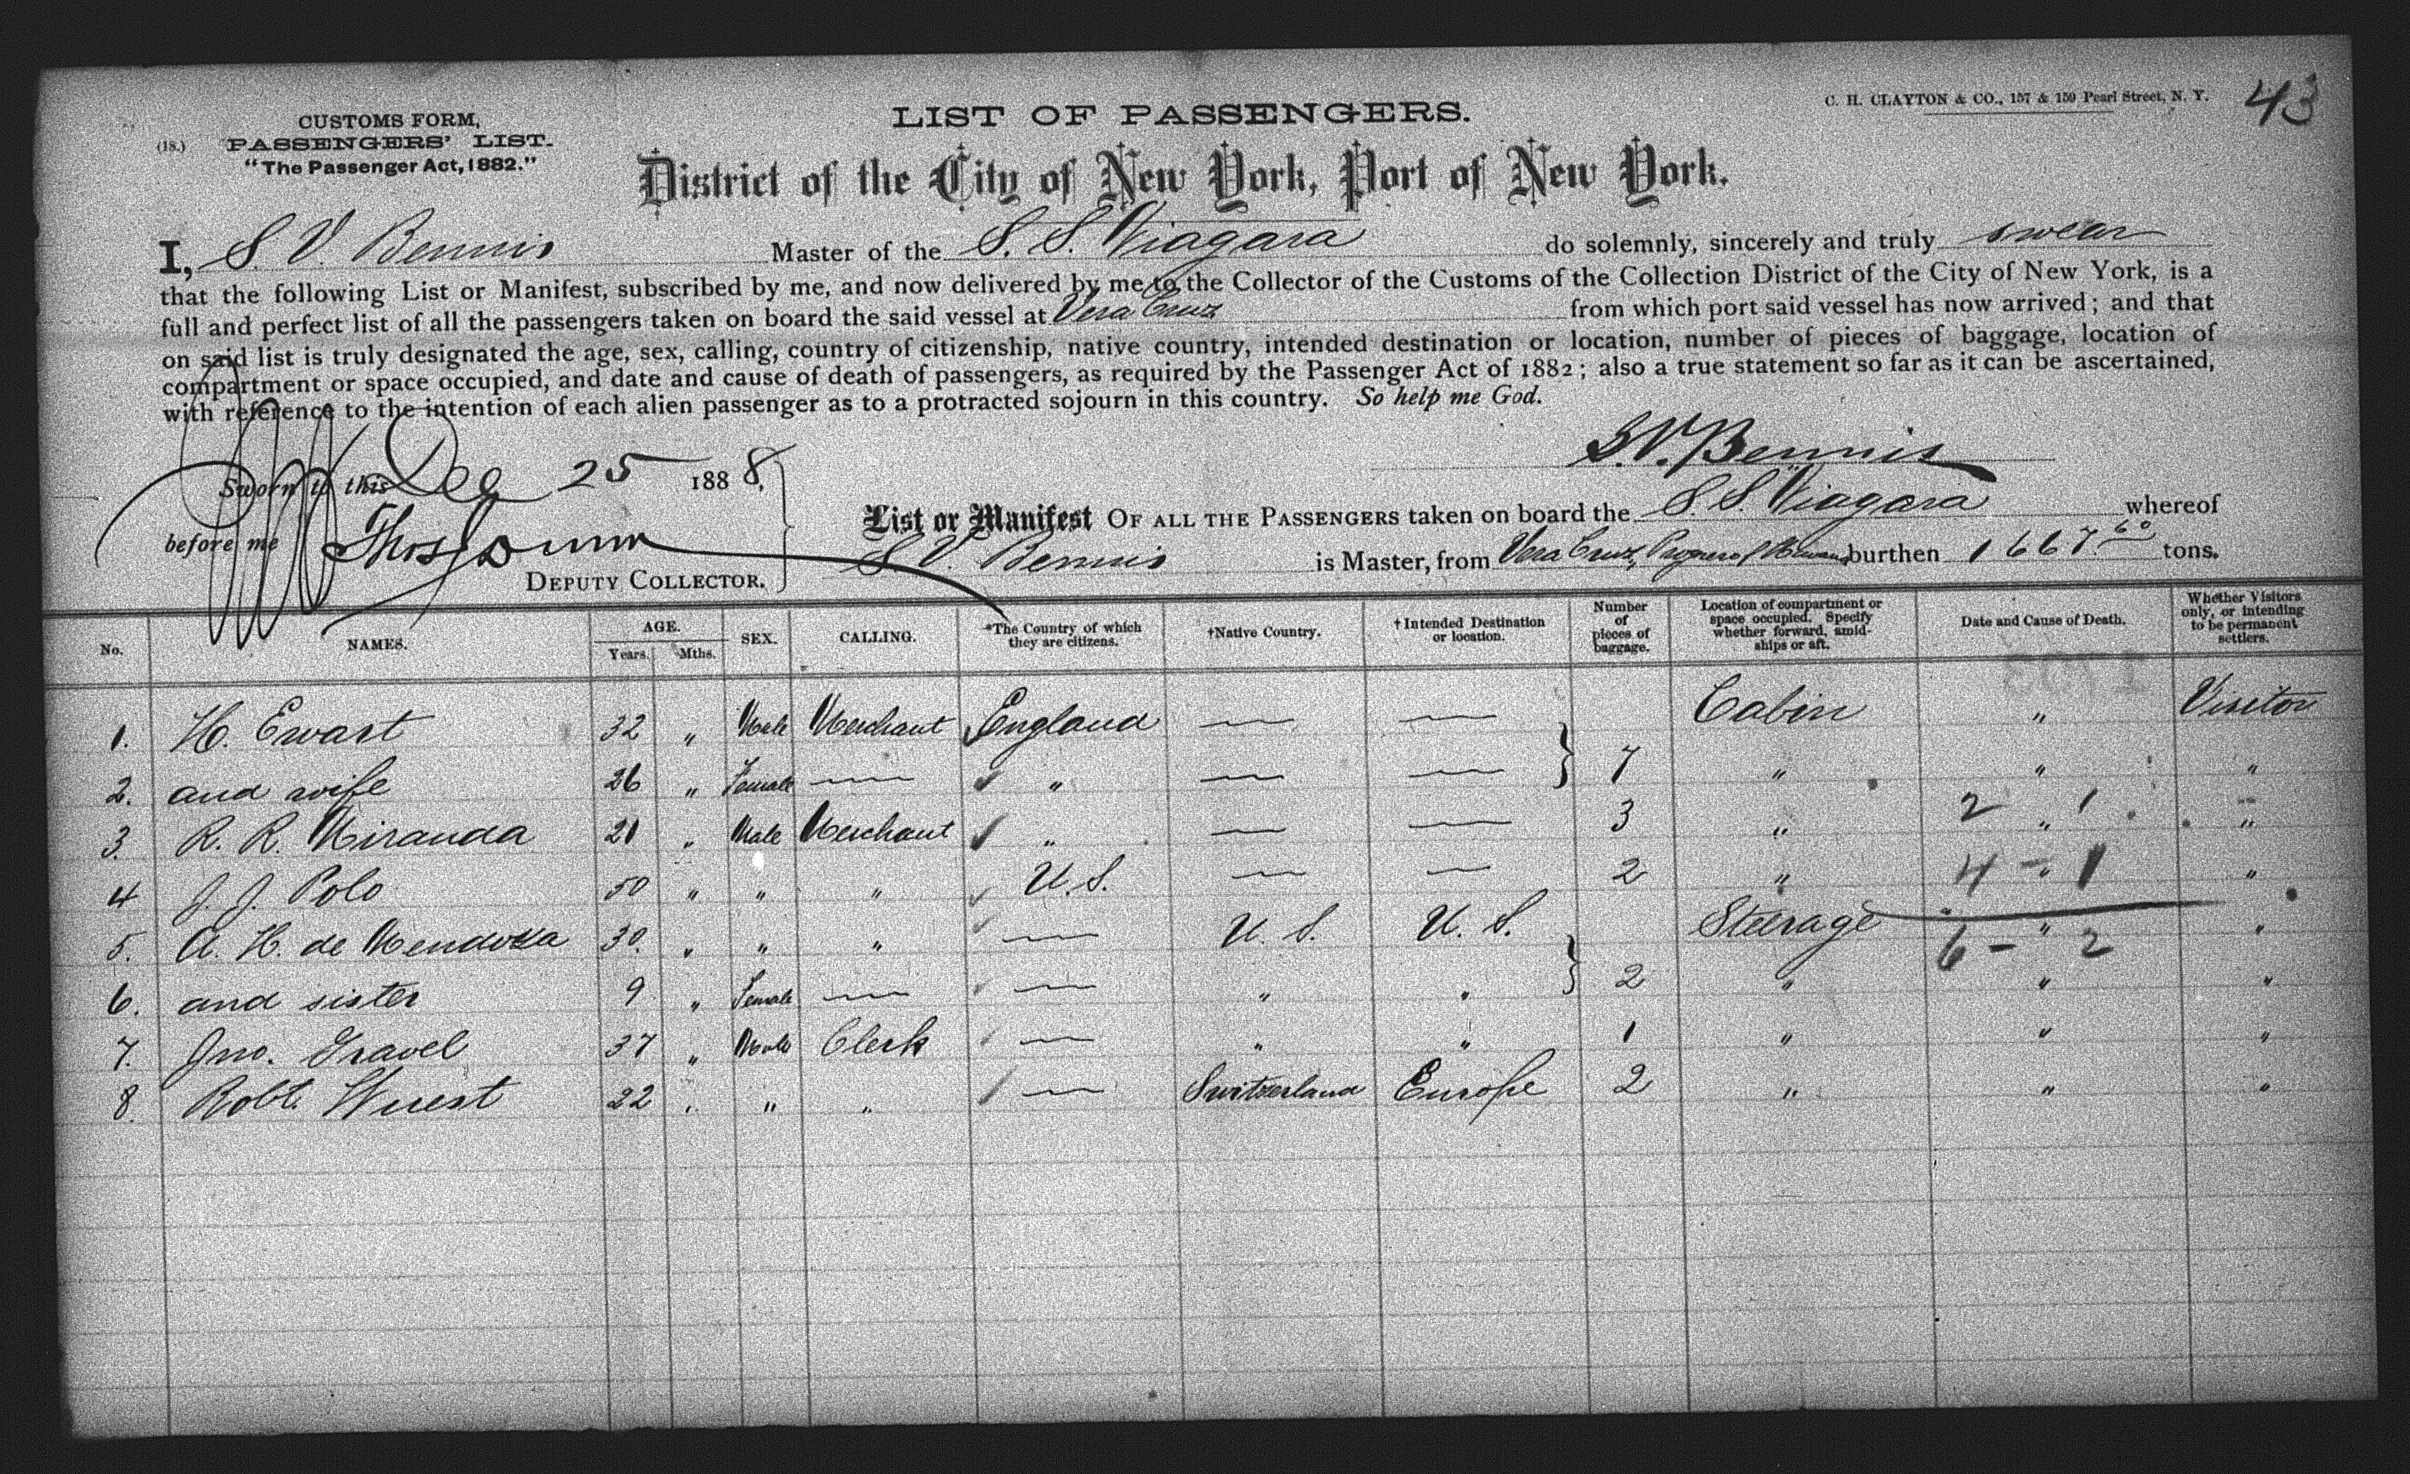 C. H. CLAYTON & CO., 157 & 159 Pearl Street, N. Y.
43
CUSTOMS FORM,
(18.) PASSENGERS' LIST.
"The Passenger Act, 1882."
LIST OF PASSENGERS.
District of the City of New York, Port of New York.
I, S. V. Bennis Master of the S. S. Niagara do solemnly, sincerely and truly swear
that the following List or Manifest, subscribed by me, and now delivered by me to the Collector of the Customs of the Collection District of the City of New York, is a
full and perfect list of all the passengers taken on board the said vessel at Vera Cruz from which port said vessel has now arrived; and that
on said list is truly designated the age, sex, calling, country of citizenship, native country, intended destination or location, number of pieces of baggage, location of
compartment or space occupied, and date and cause of death of passengers, as required by the Passenger Act of 1882; also a true statement so far as it can be ascertained,
with reference to the intention of each alien passenger as to a protracted sojourn in this country. So help me God.
S. V. Bennis
Sworn to this Dec 25 1888,
before me Thos Dunn
DEPUTY COLLECTOR.
List or Manifest OF ALL THE PASSENGERS taken on board the S. S. Niagara whereof
S. V. Bennis is Master, from Vera Cruz, Progreso burthen 1667.60 tons.
No. NAMES. AGE. Years. Mths. SEX. CALLING. *The Country of which they are citizens. †Native Country. †Intended Destination or location. Number of pieces of baggage. Location of compartment or space occupied. Specify whether forward, amidships or aft. Date and Cause of Death. Whether Visitors only, or intending to be permanent settlers.
1. H. Ewart 32 " Male Merchant England — — Cabin " Visitor
2. and wife 26 " Female — " — — } 7 " " "
3. R. R. Miranda 21 " Male Merchant " — — 3 " 2 " 1 "
4 J. J. Polo 50 " " " U. S. — — 2 " 4 - " 1 "
5. A. H. de Mendoza 30. " " " — U. S. U. S. Steerage " "
6. and sister 9 " Female — — " " } 2 " 6 - 2 " "
7. Jno. Gravel 37 " Male Clerk — " " 1 " " "
8. Robt. Wuest 22 " " " — Switzerland Europe 2 " " "